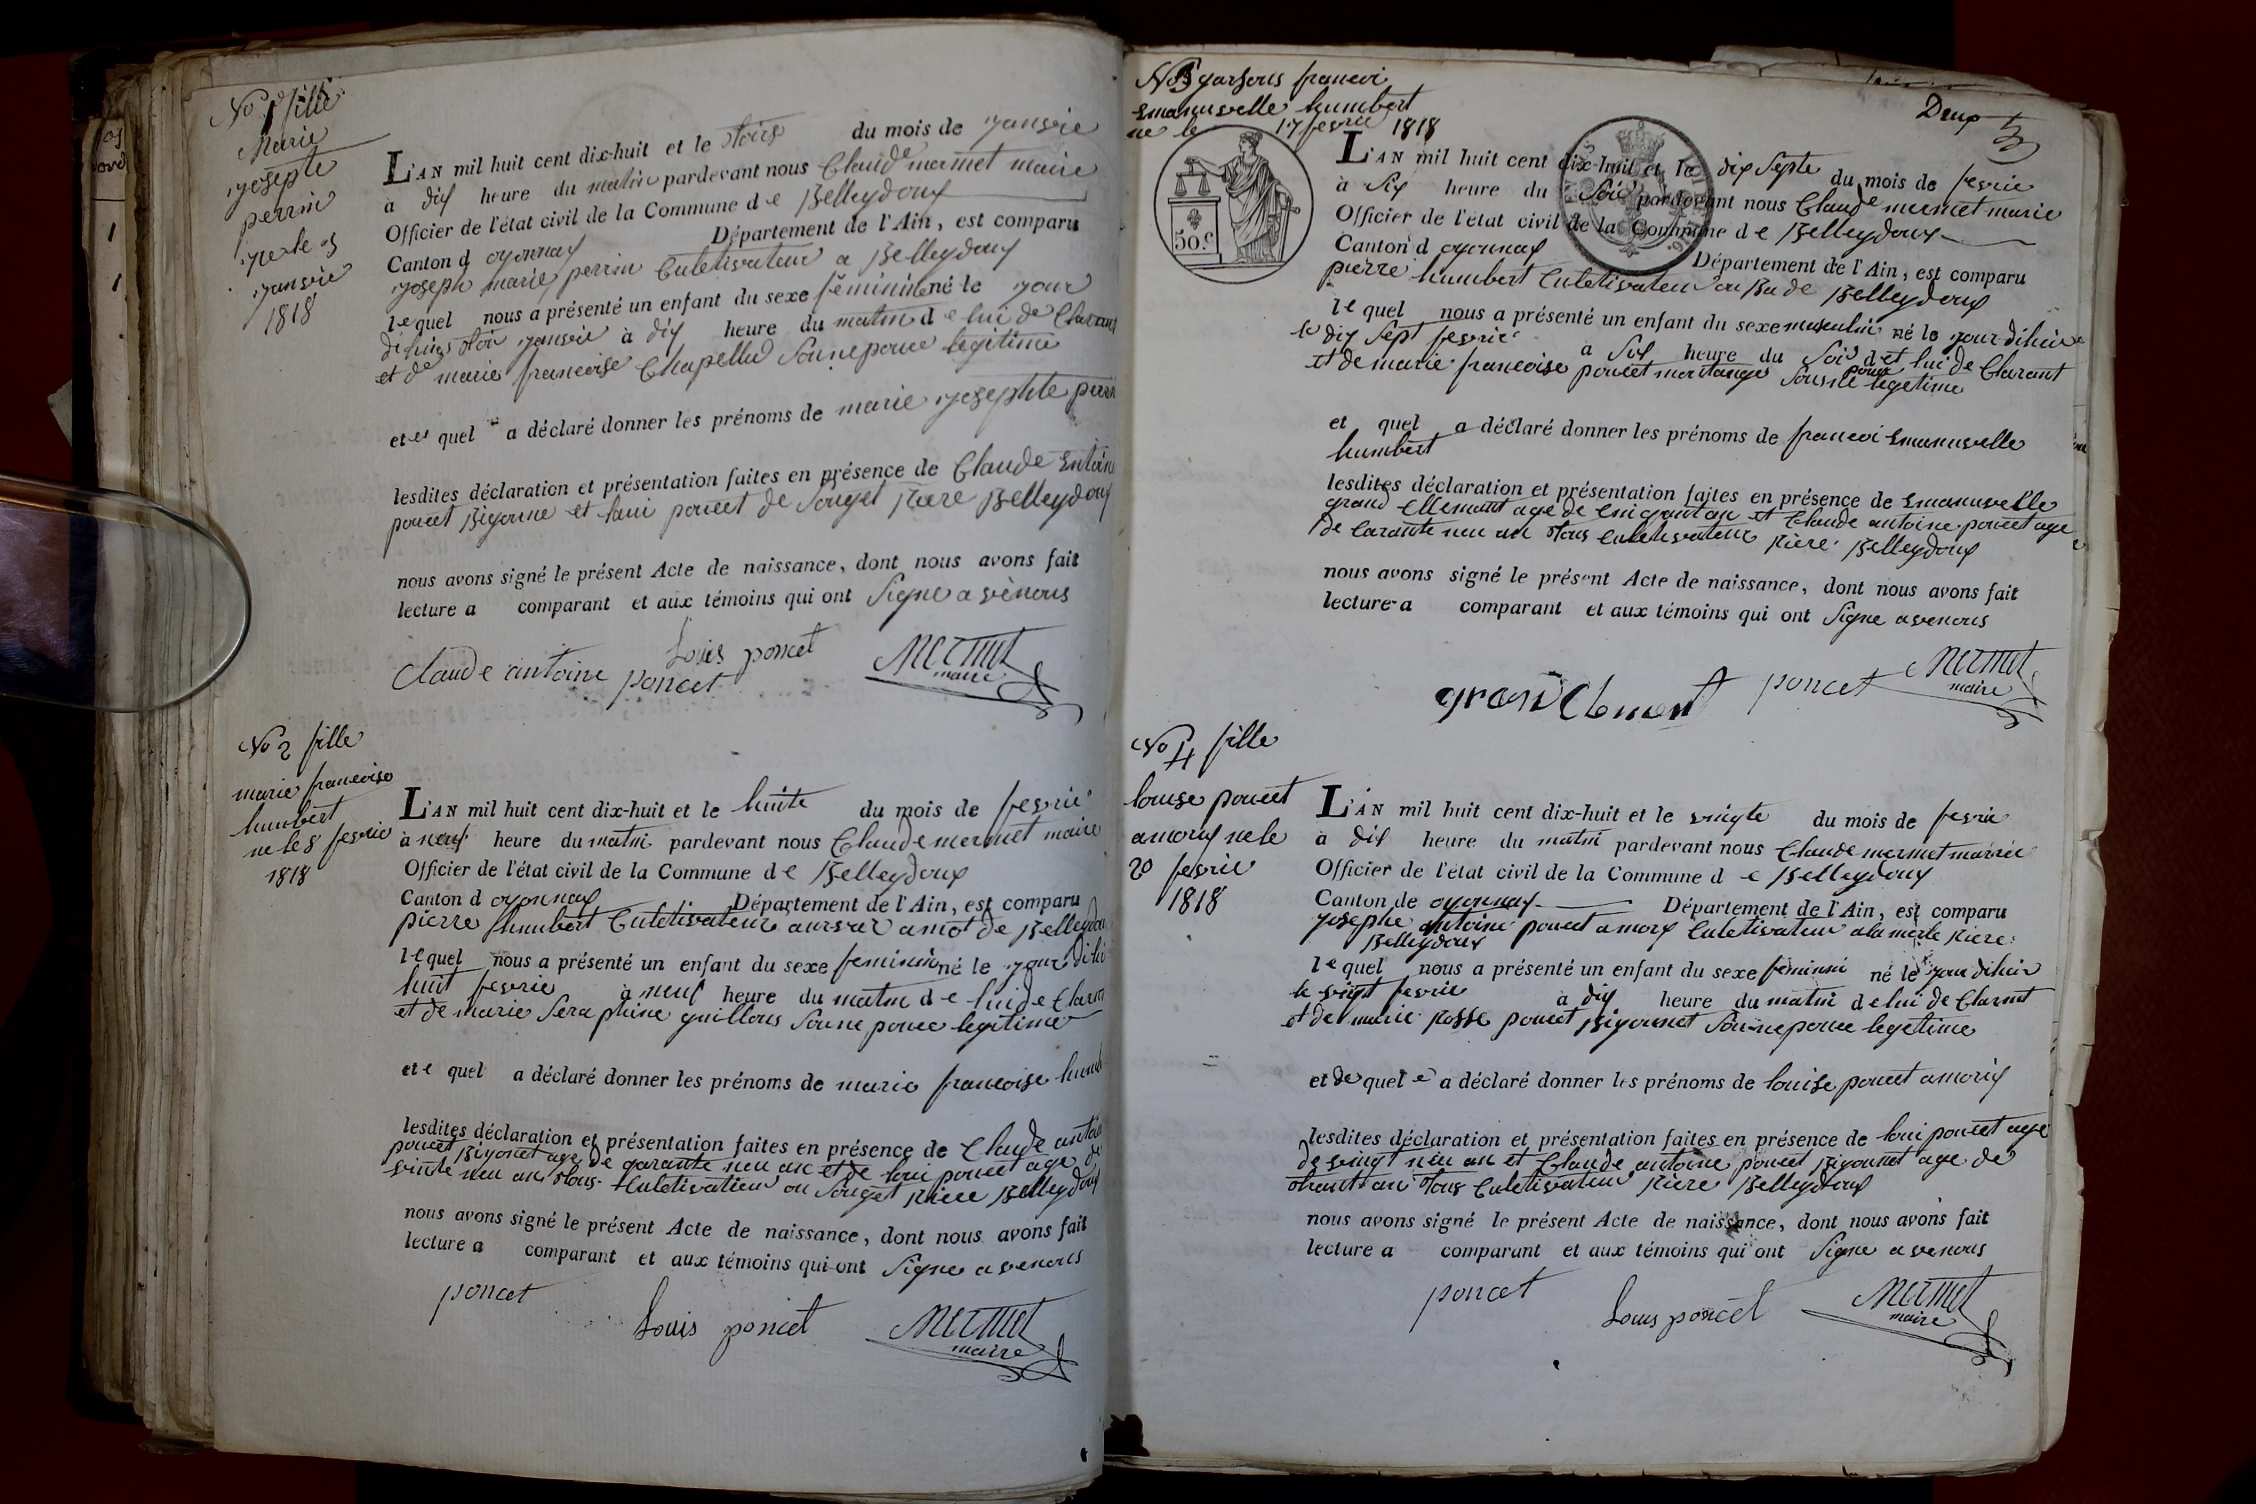 No 1 fille
Marie
yosepte
perrin
ne le 3
yanvie
1818
L'AN mil huit cent dix-huit et le troi du mois de yanvie
à dix heure du matin pardevant nous Claude mermet maire
Officier de l'état civil de la Commune de Belleydoux
Canton d oyonnax Département de l'Ain, est comparu
yoseph marie perrin Culetivateur a Belleydoux
lequel nous a présenté un enfant du sexe feminin né le your
yanvie à dix heure du matin de lui de Clarant
et de marie francoise Chapellu Sonnepouce legitime
et quel a déclaré donner les prénoms de marie yosephte perrin
lesdites déclaration et présentation faites en présence de Claude Entoine
poncet Bigonne et loui poncet de Souget Riere Belleydoux
nous avons signé le présent Acte de naissance, dont nous avons fait
lecture a comparant et aux témoins qui ont Signe avenous
Louis poncet
Claude antoine poncet
MERMET
maire
No 2 fille
marie francoise
humbert
ne le 8 fevrie
1818
L'AN mil huit cent dix-huit et le huite du mois de fevrie
à neuf heure du matin pardevant nous Claude mermet maire
Officier de l'état civil de la Commune de Belleydoux
Canton d oyonnax Département de l'Ain, est comparu
pierre humbert Culetivateur de Belleydoux
lequel nous a présenté un enfant du sexe feminin né le your
huit fevrie à neuf heure du matin de lui de Clarant
et de marie Seraphine guillous Sonnepouce legitime
et quel a déclaré donner les prénoms de marie francoise humb
lesdites déclaration et présentation faites en présence de Claude antoin
poncet Bigonet age de carante neu an et de loui poncet age de
vinte neu an tous Culetivateur ou Souget Riere Belleydoux
nous avons signé le présent Acte de naissance, dont nous avons fait
lecture a comparant et aux témoins qui ont Signe avenous
poncet
Louis poncet
MERMET
maire
Deux
3
No 3 garsons francoi
Emanuvelle humbert
ne le 17 fevrie 1818
50.c
L'AN mil huit cent dix-huit et le dix Septe du mois de fevrie
à Six heure du Soir pardevant nous Claude mermet marie
Officier de l'état civil de la Commune de Belleydoux
Canton d oyonnax Département de l'Ain, est comparu
pierre humbert Culetivateur de Belleydoux
lequel nous a présenté un enfant du sexe masculin né le your dihier
le dix Sept fevrie à Six heure du Soir d et lui de Clarant
et de marie francoise poncet legetime
et quel a déclaré donner les prénoms de francoi Emanuvelle
humbert
lesdites déclaration et présentation faites en présence de Emanuvelle
grand Clement age de an et Claude antoine poncet age
de Carante neu an tous Culetivateur Riere Belleydoux
nous avons signé le présent Acte de naissance, dont nous avons fait
lecture a comparant et aux témoins qui ont Signe avenous
grand Clement
poncet
MERMET
maire
No 4 fille
louise poncet
amorix ne le
20 fevrie
1818
L'AN mil huit cent dix-huit et le vingte du mois de fevrie
à dix heure du matin pardevant nous Claude mermet marie
Officier de l'état civil de la Commune de Belleydoux
Canton de oyonnax Département de l'Ain, est comparu
yosephe antoine poncet amorx Culetivateur Riere
Belleydoux
lequel nous a présenté un enfant du sexe feminin né le your dihier
le vingt fevrie à dix heure du matin de lui de Clarant
et de marie Rosse poncet Bigonnet Sonnepouce legetime
et de quel e a déclaré donner les prénoms de louise poncet amorix
lesdites déclaration et présentation faites en présence de loui poncet age
de vingt neu an et Claude antoine poncet Bigonnet age de
an tous Culetivateur Riere Belleydoux
nous avons signé le présent Acte de naissance, dont nous avons fait
lecture a comparant et aux témoins qui ont Signe avenous
poncet
Louis poncet
MERMET
maire